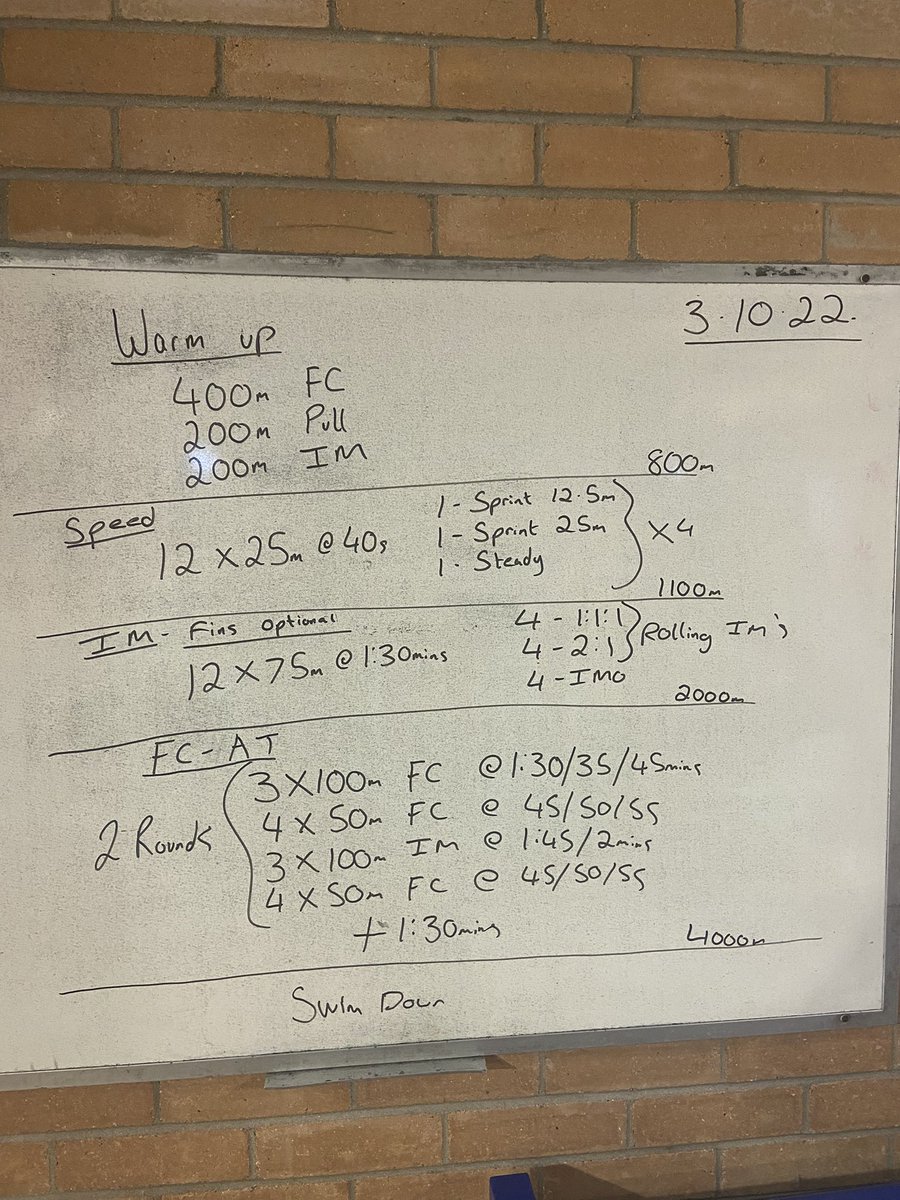 3.10.22.
Warm up
400m FC
200m Pull
200m IM
800m
Speed
12 x 25m @ 40s
1 - Sprint 12.5m
1 - Sprint 25m
1 - Steady
x4
1100m
IM - Fins optional
12 x 75m @ 1:30mins
4 - 1:1:1
4 - 2:1
Rolling IM's
4 - IMO
2000m
FC - AT
2 Rounds
3 x 100m FC @ 1:30/35/45mins
4 x 50m FC @ 45/50/55
3 x 100m IM @ 1:45/2mins
4 x 50m FC @ 45/50/55
+ 1:30mins
4000m
Swim Down